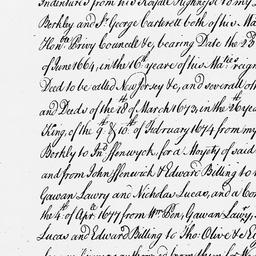 Indentures from his Royall Highness to my L
Berkley and Sr. George Carterett both of his Ma
Honble. Privy Councell &c, bearing Date the 23
of June 1664, in the 16th year of his Maties reign
Deed to be called New Jersey &c, and severall oth
and Deeds of the 18th. of March 1673, in the 26th yea
King, of the 9th. & 10th. of February 1674 from my
Berkly to Jno. ffenwyck. for a Moyety of said
and from John ffenwick & Edward Billing to
Gawan Lawry and Nicholas Lucas, and a Con
the 4th. of Apr. 1677 from Wm. Pen, Gawan Lawry,
Lucas and Edward Billing to Tho: Olive & E